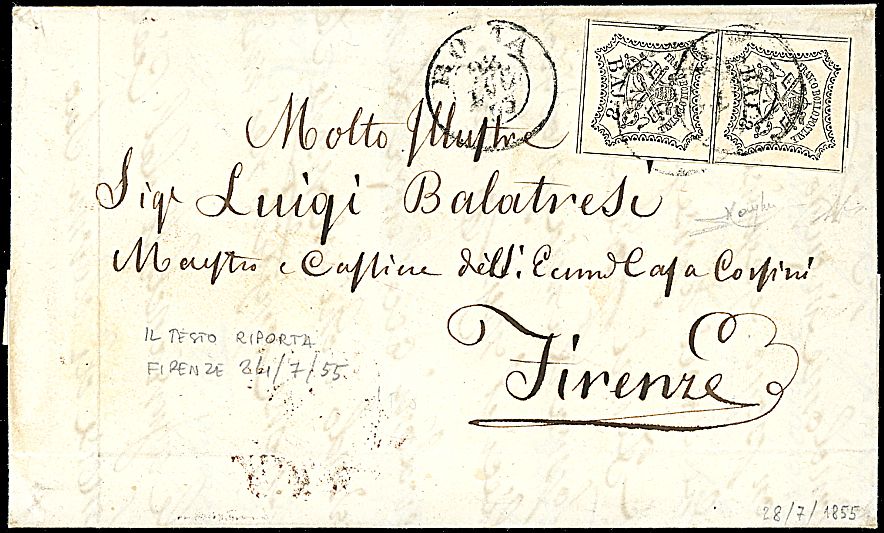 ROMA
28
LUG
55
FRANCO BOLLO POSTALE
BAJ. 2.
FRANCO BOLLO POSTALE
BAJ. 2.
Molto Illustre
Sigr Luigi Balatresi
Maestro e Cassiere dell'. Casa Corsini
Firenze
IL TESTO RIPORTA
FIRENZE 24/7/55
28/7/1855